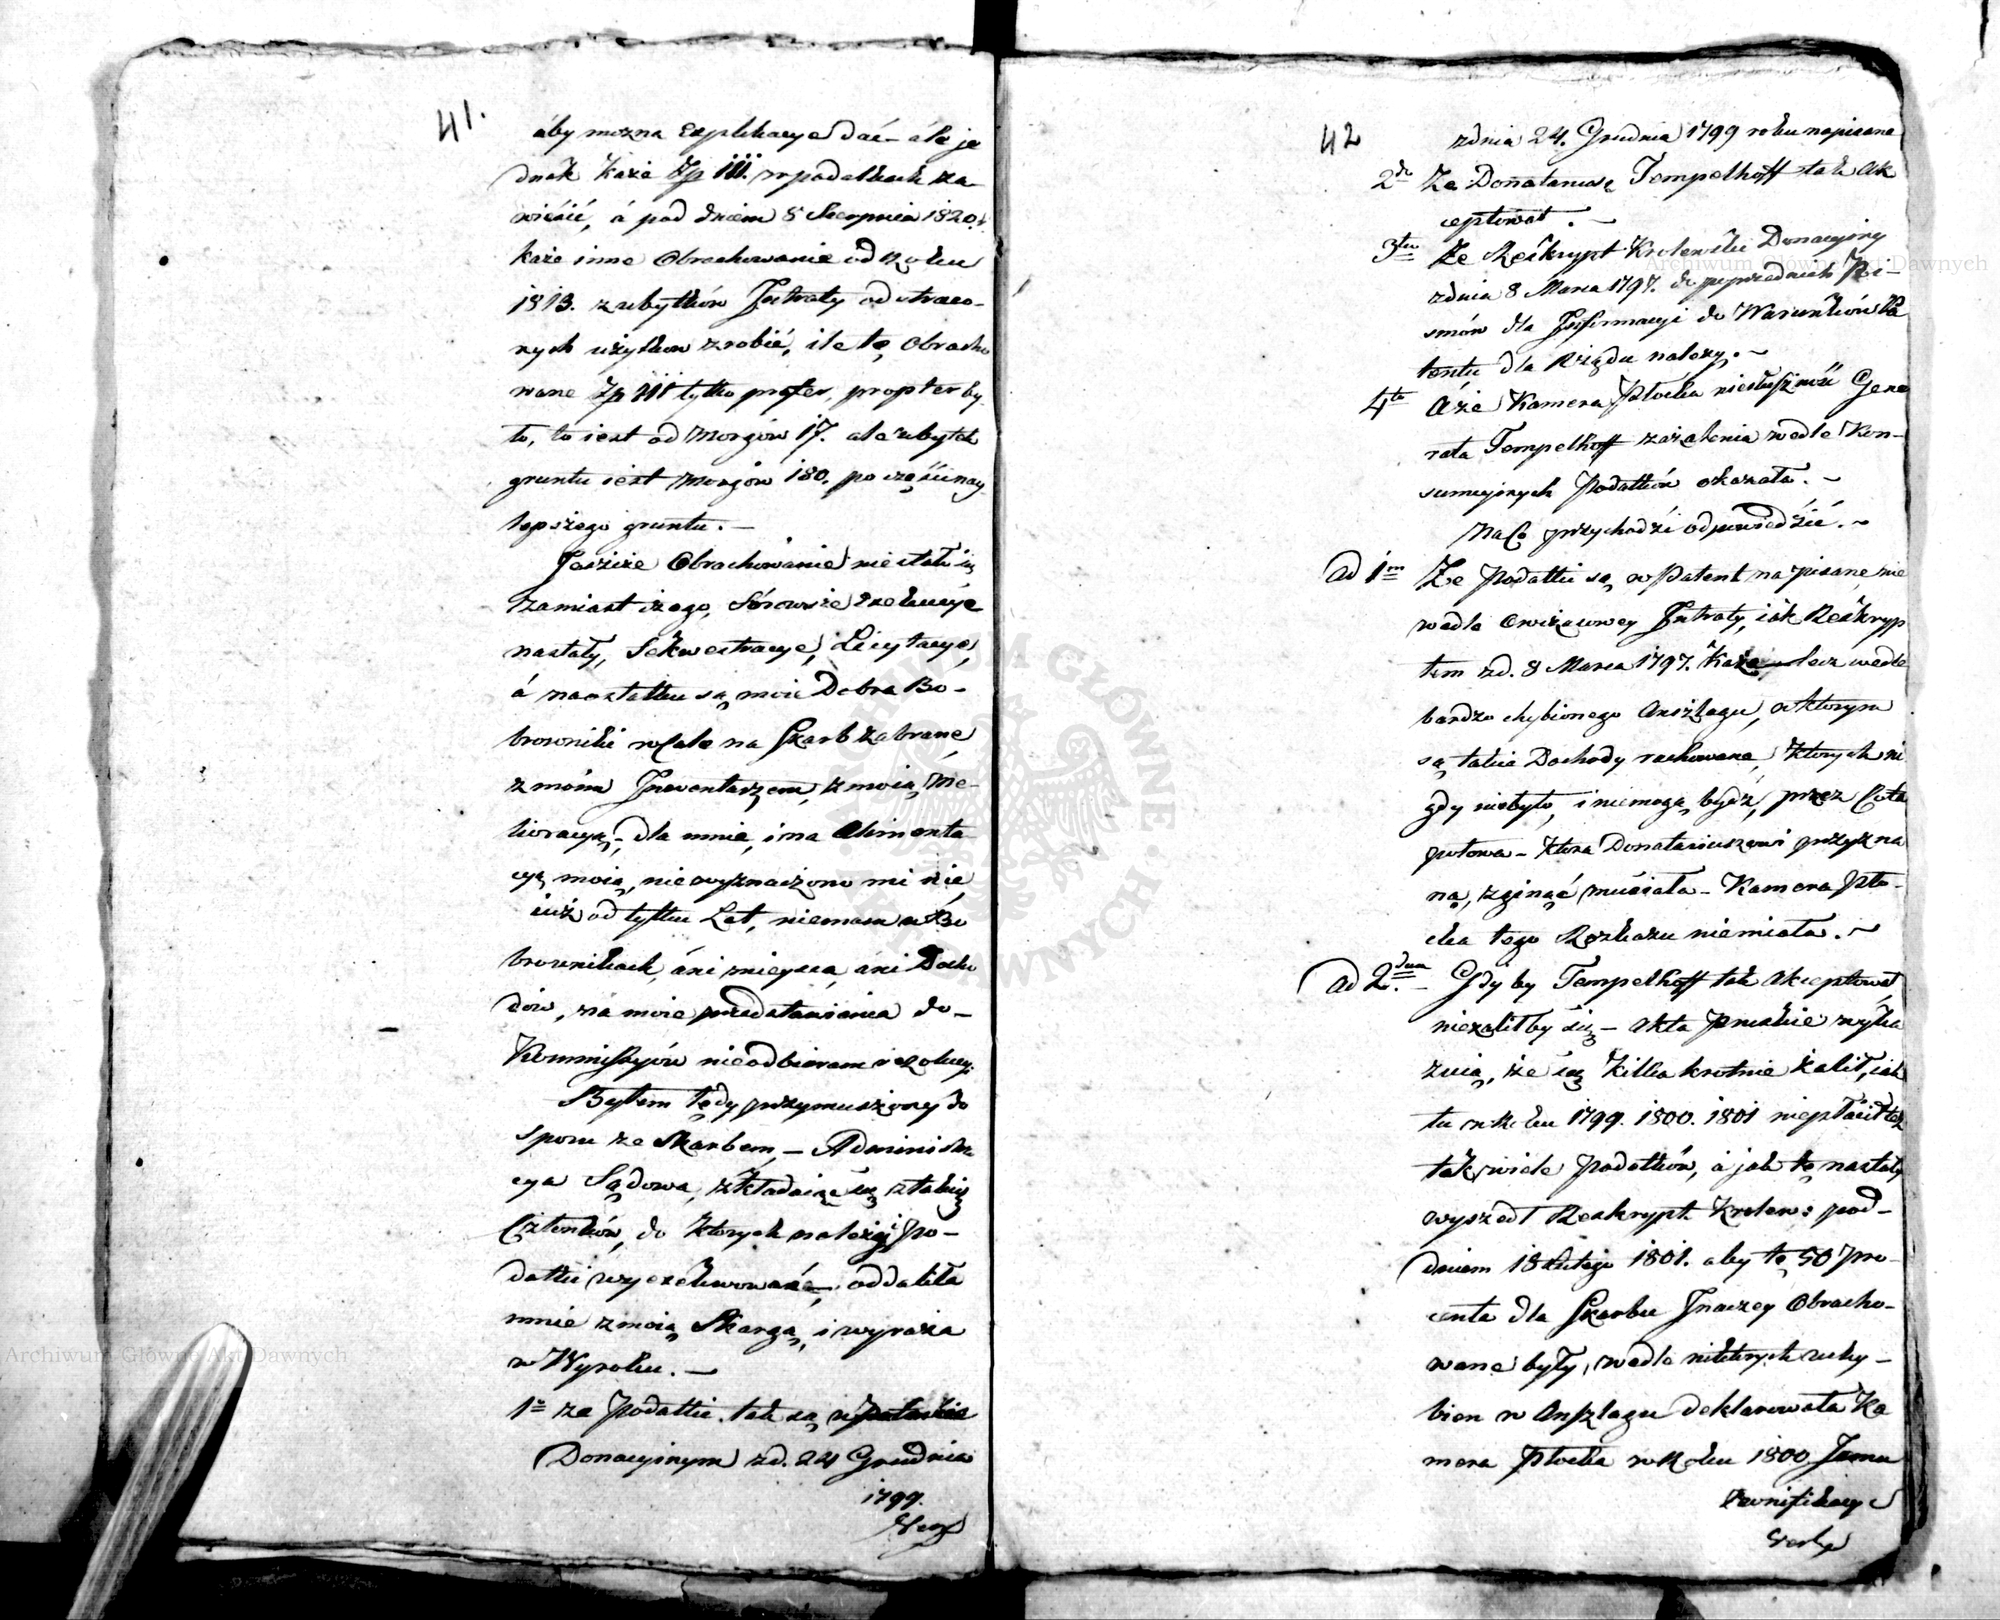 41.
aby można Explikacye dać – ále je
dnak każe Zp III. w podatkach za-
wieśić, á pod dniem 8 Sierpnia 1820. r.
każe inne Obrachowanie od Roku
1813. z ubytków Intraty od utraco-
nych użytków zrobić, ile te Obracho
wane Zp III tylko profer, propter by-
to, to iest od Morgów 17. ale ubytek
gruntu iest Morgów 180. po części nay
lepszego gruntu. –
Jeszcze Obrachowanie nie stało się
zamiast tego, Surowsze Exekucye
nastały, Sekwestracye, Licytacye,
á na ostatku są moie Dobra Bo-
browniki wcale na Skarb zabrane
z moim Inwentarzem, z moią Me-
lioracyą, – dla mnie, i na Alimenta
cyą moią, nie wyznaczono mi nic
iuż od tylku Lat, niemam w Bo
brownikach, áni mieysca, áni Docho
dów, na moie przedstawienia do –
Kommissyów nieodbieram rezolucyi
Byłem tedy przymuszony do
sporu ze Skarbem, – Administra
cya Sądowa, składaiące się z takich
Członków, do których należy po-
datki wyexekwować, oddaliła
mnie z moią Skargą, i wyraża
w Wyroku. –
1o że Podatki tak są w Patencie
Donacyinym zd. 24 Grudnia
1799.
42
zdnia 24. Grudnia 1799 roku napisane
2do Że Donataryusz Tempelhoff tak Ak
ceptował. –
3tio Że Reskrypt Krolewski Donacyiny
zdnia 8 Marca 1797. do poprzednich Pi-
smów dla Informacyi do Warunków Pa
tentu dla Rządu należy. –
4to Aże Kamera Płocka niesłuszność Gene
rała Tempelhoff zażalenia wedle Kon-
sumcyinych Podatków okazała. –
Na Co przychodzi odpowiedzić. –
Ad 1m Że Podatki są w Patent napisane nie
wedle owszowey Intraty, iak Reskryp
tem zd. 8 Marca 1797. Każe, lecz wedle
bardzo chybionego Anszlagu, w którym
są takie Dochody rachowane, których ni
gdy niebyło, i niemogą bydź, przez Co ta
połowa – która Donataryuszowi przyzna
na, zginąć musiała – Kamera Pło-
cka tego Rozkazu niemiała. –
Ad 2dum – Gdy by Tempelhoff tak Akceptował,
nieżalił by się – Akta Pruskie wyka
zuią, że się kilka krotnie żalił, iak
tu w Roku 1799. 1800. 1801 niepłacił też
tak wiele Podatków, á jak te nastały
wyszedł Reskrypt Krolew: pod –
dniem 18 Lutego 1801. aby te 50 pro-
centa dla Skarbu Inaczey Obracho-
wane były, wedle niektórych uchy –
bien w Anszlagu deklarowała Ka
mera Płocka w Roku 1800 Jemu